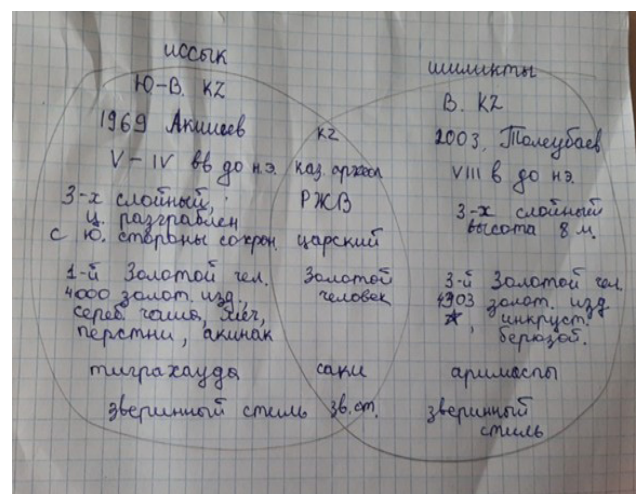 иссык
Ю-В. KZ
1969 Акишев
V – IV вв до н.э.
3-х слойный,
ц. разграблен
с Ю. стороны сохран.
1-й Золотой чел.
4000 золот. изд.,
сереб. чаша, меч,
перстни, акинак
тиграхауда
зверинный стиль
KZ
каз. археол
РЖВ
царский
Золотой
человек
саки
зв. ст.
шиликты
В. KZ
2003, Толеубаев
VIII в до н.э.
3-х слойный
высота 8 м.
3-й Золотой чел.
4303 золот. изд
инкруст.
берюзой.
аримаспы
зверинный
стиль